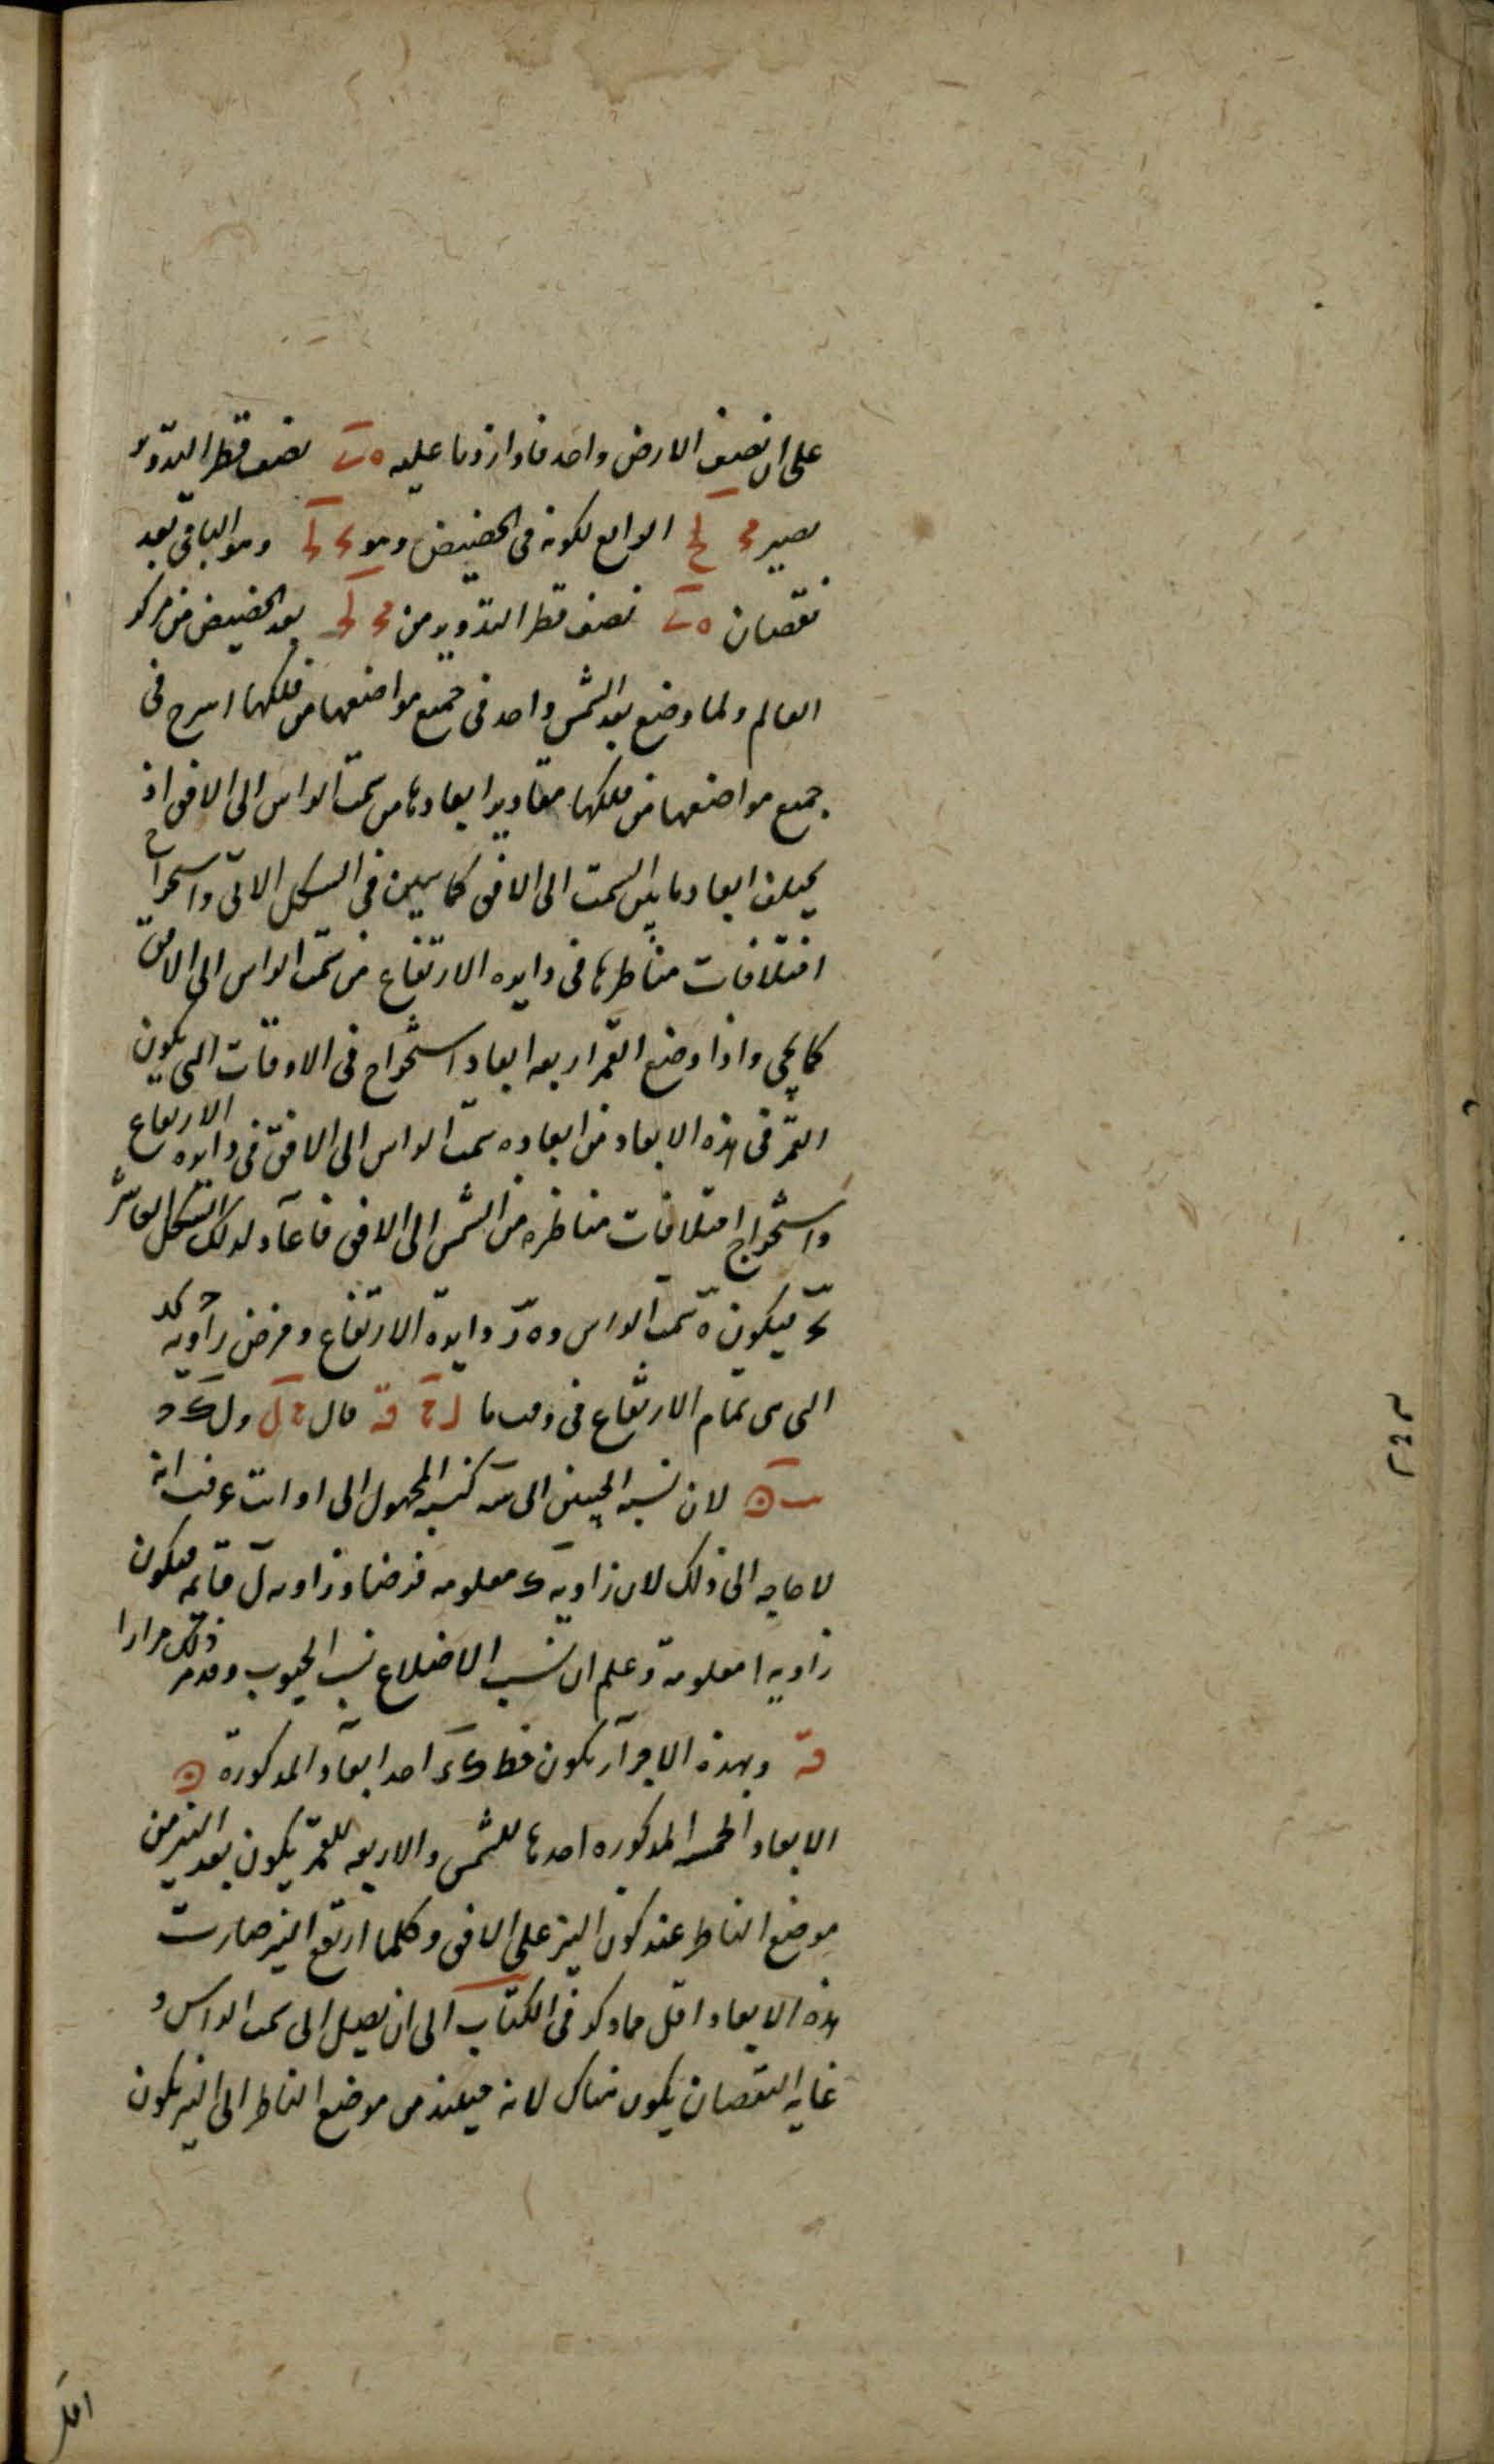 على ان نصف الارض واحد فاذا زدنا عليه ه ى نصف قطر التدوير
يصير مح الرابع لكونه فى الحضيض وهو وهو الباقى بعد
نقصان ه ى نصف قطر التدوير من مح بعد الحضيض من مركز
العالم ولما وضع بعد الشمس واحد فى جميع مواضعها من فلكها استخرج فى
جميع مواضعها من فلكها مقادير ابعادها من سمت الراس الى الافق اذ
يختلف ابعادها بين السمت الى الافق كما سيبين فى الشكل الاتى واستخراج
اختلافات مناظرها فى دايره الارتفاع من سمت الراس الى الافق
كما يجى واذا وضع القمر اربعه ابعاد استخراج فى الاوقات التى يكون
القمر فى هذه الابعاد من ابعاده سمت الراس الى الافق فى دايره الارتفاع
واستخراج اختلافات مناظره من الشمس الى الافق فاعاد لذلك الشكل العاشر
فيكون ه سمت الراس و ه ر دايرة الارتفاع وفرض زاويه
التى هى تمام الارتفاع فى وقت ما قال
لان نسبه الجيبين الى سه كنسبه المجهول الى او انت عرفت انه
لا حاجه الى ذلك لان زاويه ك معلومه فرضا وزاويه ل قائمه فيكون
زاويه ا معلومة وعلم ان نسب الاضلاع نسب الجيوب وقد مر ذلك مرارا
وبهذه الاجزآء يكون خط احد ابعاد المذكورة
الابعاد الخمسه المذكوره احدها للشمس والاربعه للقمر يكون بعد النير من
موضع الناظر عند كون النير على الافق وكلما ارتفع النير صارت
هذه الابعاد اقل مما ذكر فى الكتاب الى ان يصل الى سمت الراس و
غايه النقصان يكون هناك لانه حينئذ من موضع الناظر الى النير يكون
اقل